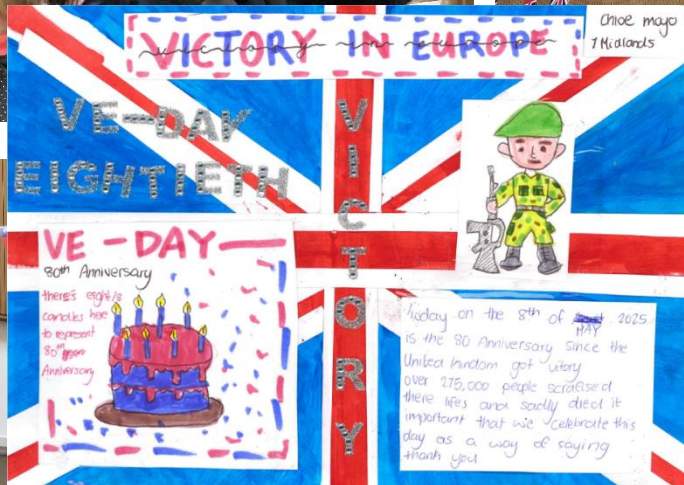 VICTORY IN EUROPE
victory in europe
Chloe mayo
7 Midlands
VE-DAY
EIGHTIETH
VICTORY
VE-DAY
80th Anniversary
there's eight
candles here
to represent
80th
Anniversary
Today on the 8th of MAY 2025
is the 80 Anniversary since the
United Kindom got vitory
over 275,000 people scrafised
there lifes and sadly died it
important that we celebrate this
day as a way of saying
thank you